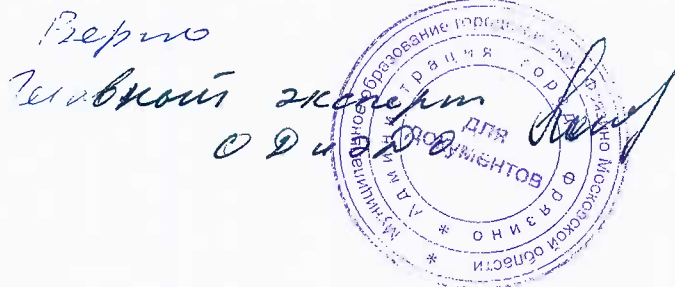 Верно
Главный эксперт
ОДиЭДО
Муниципальное образование городской округ Фрязино Московской области
* Администрация города Фрязино *
ДЛЯ
ДОКУМЕНТОВ